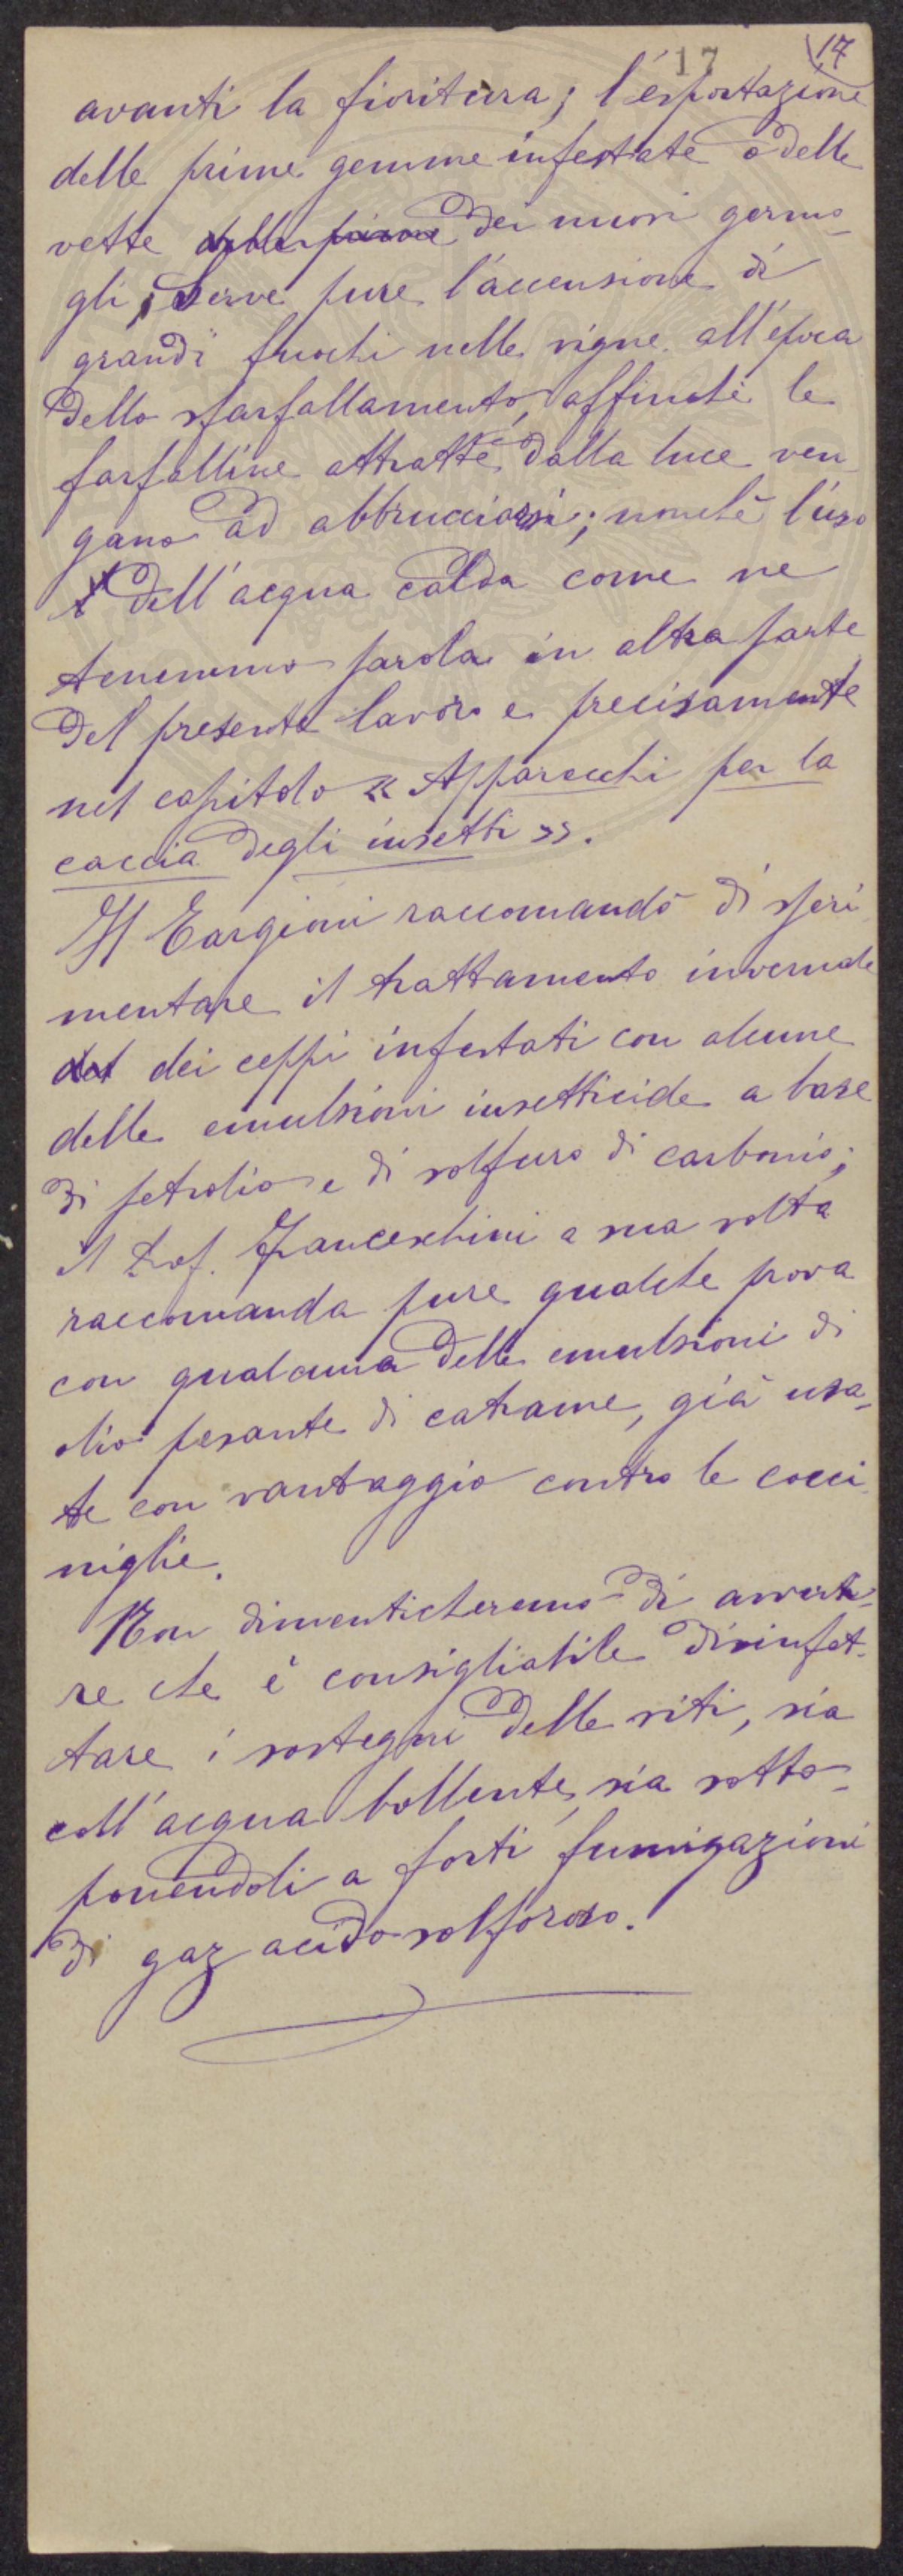 17 17
avanti la fioritura; l'esportazione
delle prime gemme infestate o delle
vette delle prime dei nuovi germo-
gli; Serve pure l'accensione di
grandi fuochi nelle vigne all'epoca
dello sfarfallamento, affinchè le
farfalline attratte dalla luce ven
gano ad abbrucciarsi; nonchè l'uso
dell'acqua calda come ne
tenemmo parola in altra parte
del presente lavoro e precisamente
nel capitolo « Apparecchi per la
caccia degli insetti ».
Il Targioni raccomandò di speri
mentare il trattamento invernale
del dei ceppi infestati con alcune
delle emulsioni insetticide a base
di petrolio e di solfuro di carbonio;
il Prof. Franceschini a sua volta
raccomanda pure qualche prova
con qualcuna delle emulsioni di
olio pesante di catrame, già usa-
te con vantaggio contro le cocci
niglie.
Non dimenticheremo di averti-
re che è consigliabile disinfet-
tare i sostegni delle viti, sia
coll'acqua bollente, sia sotto-
ponendoli a forti fumigazioni
di gaz acido solforoso.